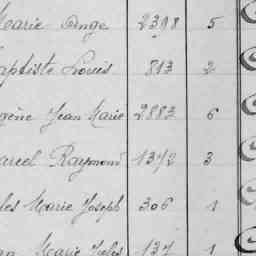 Marie Ange 2398 5
aptiste Louis 813 2
gène Jean Marie 2883 6
arcel Raymond 1372 3
les Marie Joseph 306 1
Marie Jules 137 1